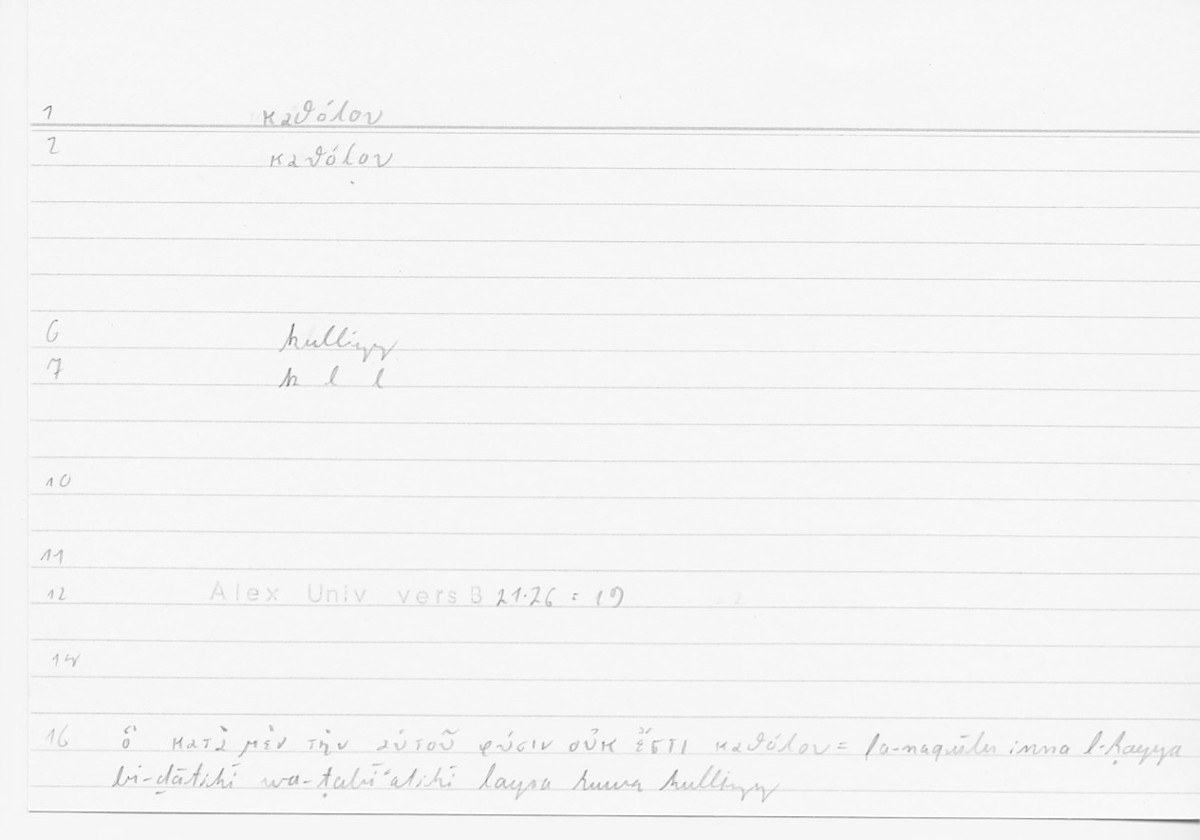 1 καθόλου
2 καθόλου
6 kulliyy
7 k l l
10
11
12 Alex Univ vers B 21.26 = 19
14
16 ὃ κατὰ μὲν τὴν αὑτοῦ φύσιν οὐκ ἔστι καθόλου = fa-naqūlu inna l-ḥayya
bi-ḏātihī wa-ṭabīʿatihī laysa huwa kulliyy